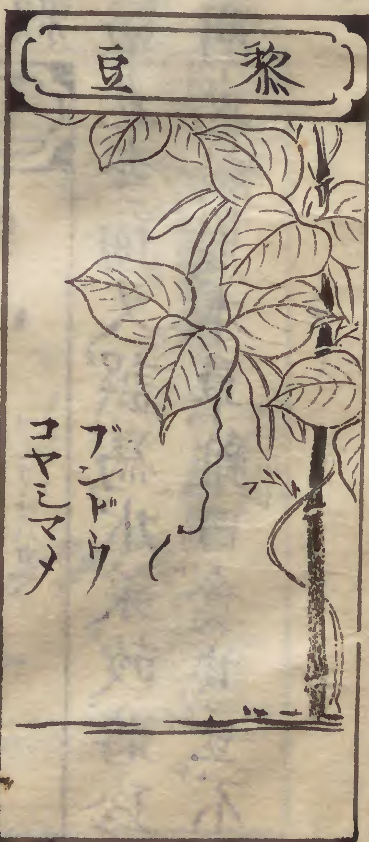 黎豆
ブンドウ
コヤシマメ